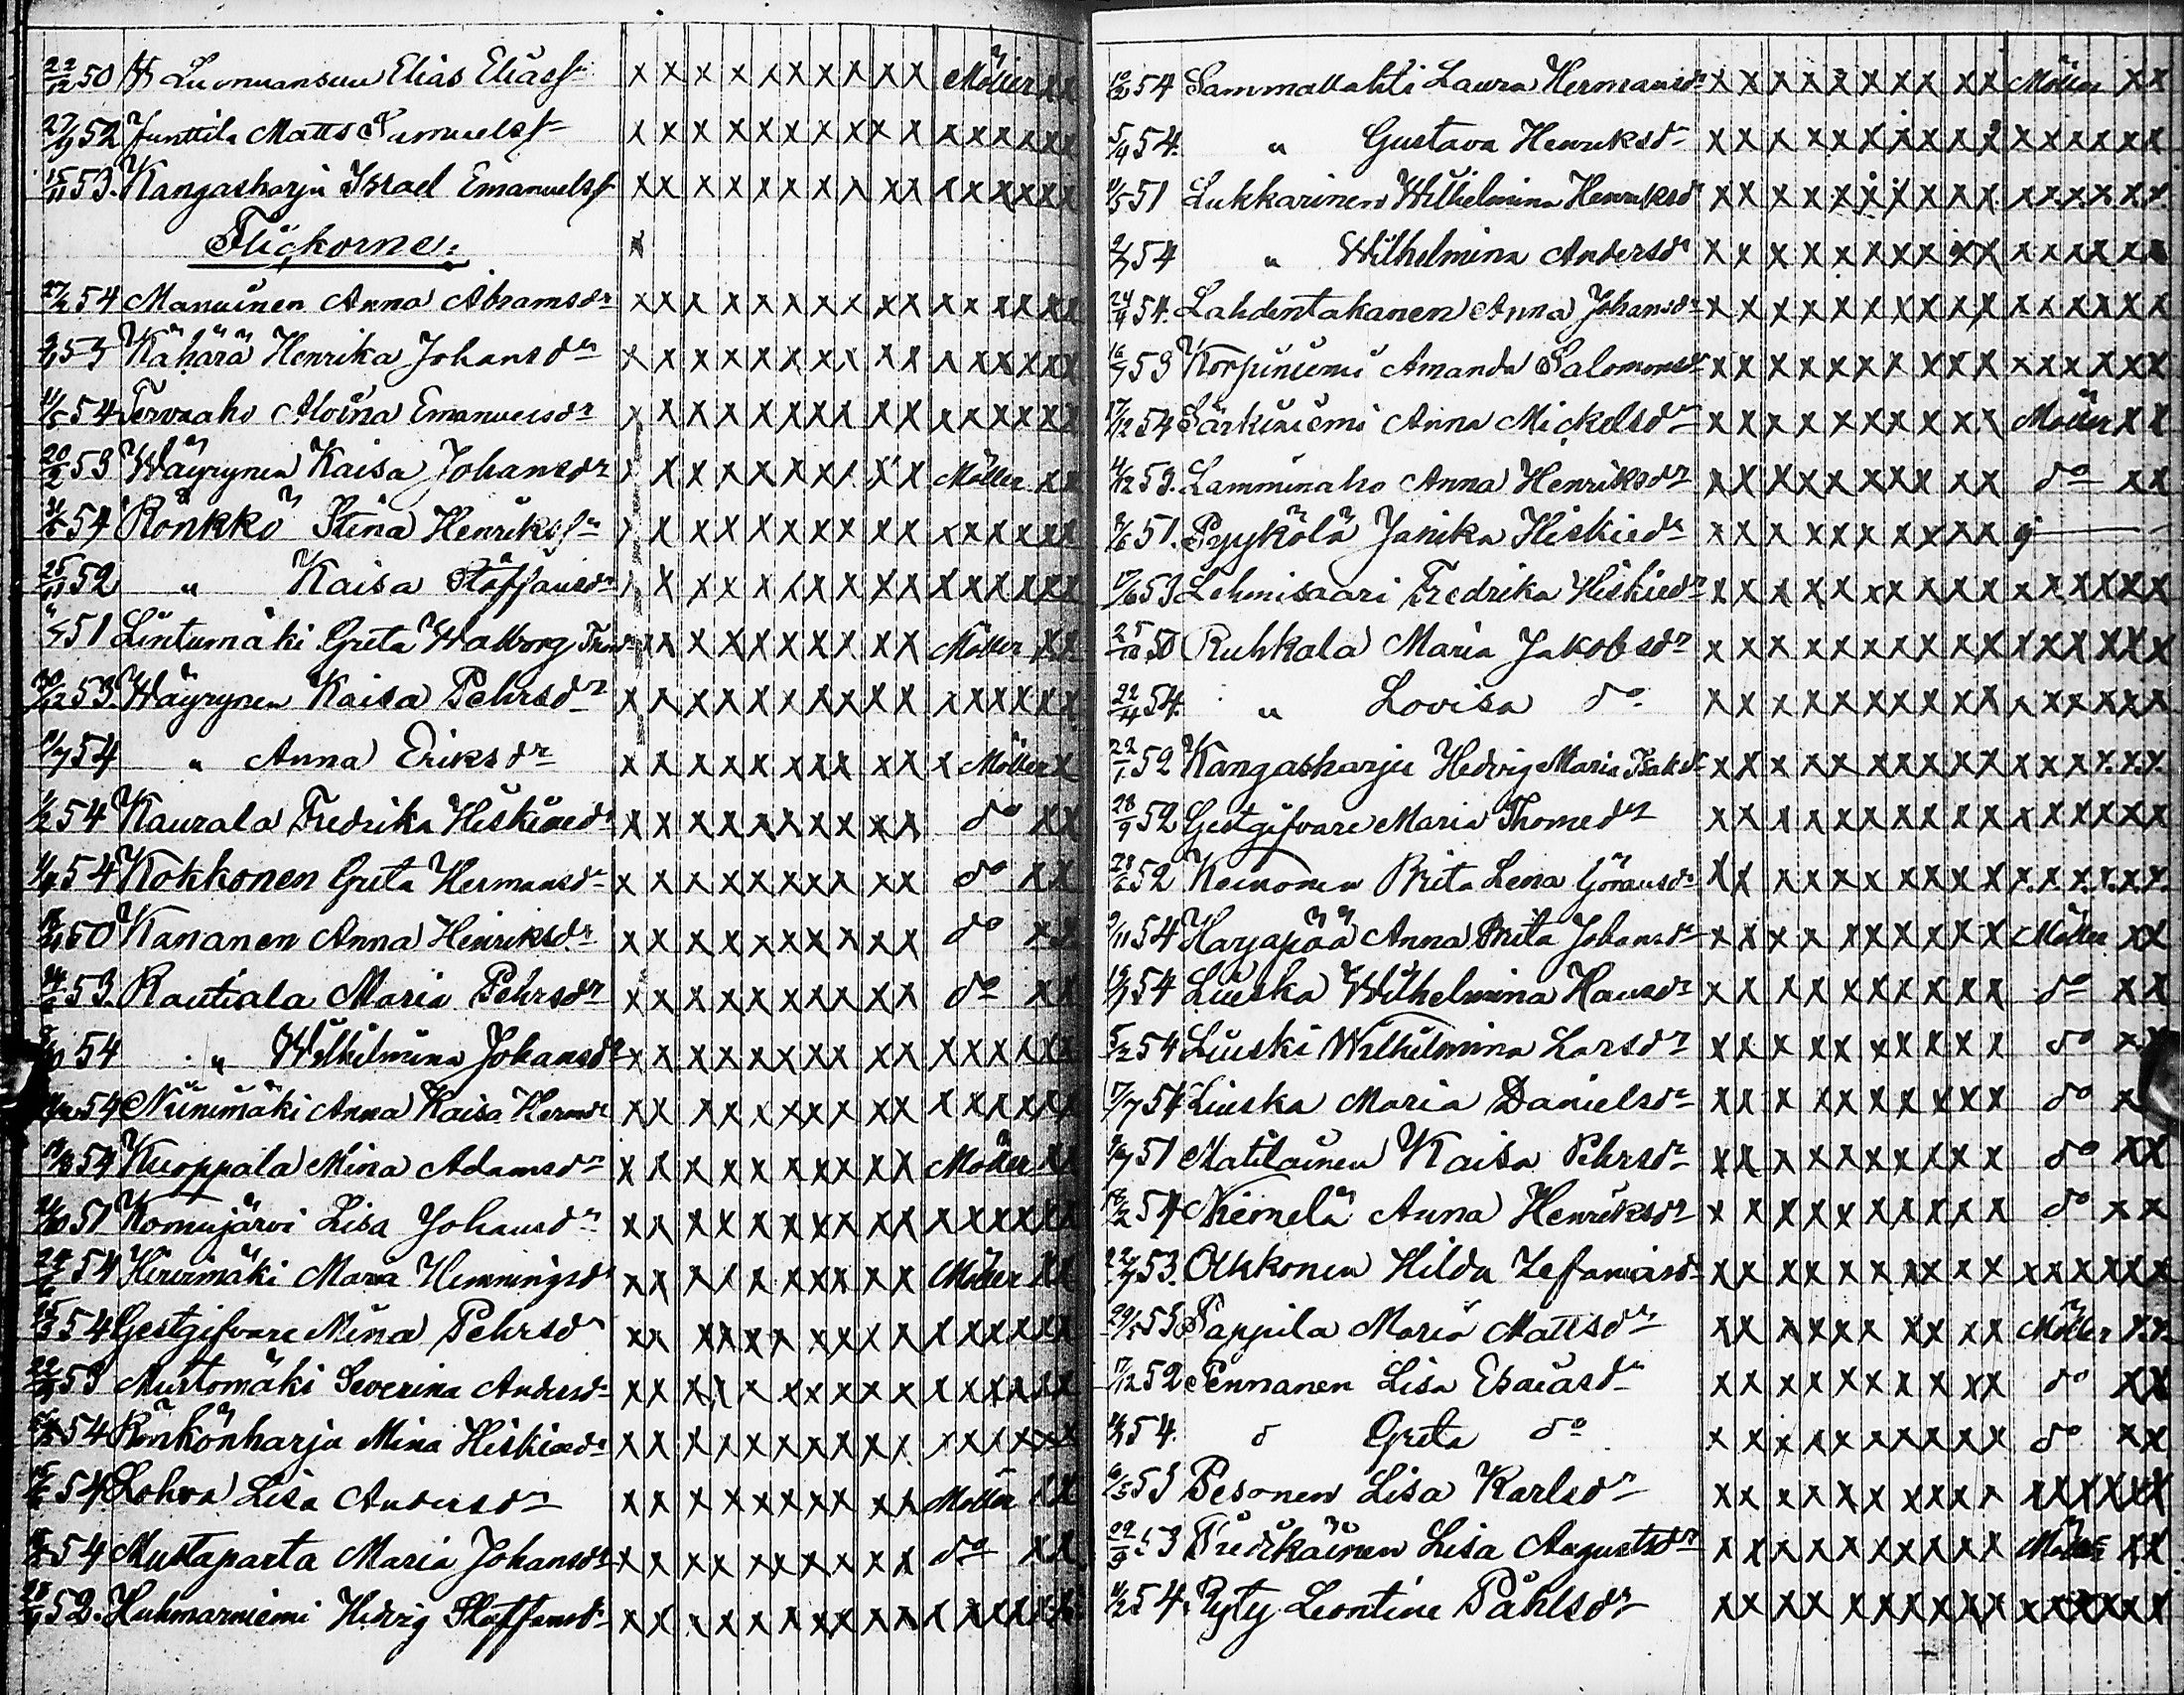 22/12 50 Luonuansuu Elias Eliass. x x x x x x x x x x Möller x x
27/9 52 Junttila Matts Samuelss. x x x x x x x x x x x x x x x x
15/11 53. Kangasharju Israel Emanuelss. x x x x x x x x x x x x x x x x
Flickorne:
27/2 54 Manninen Anna Abramsdr x x x x x x x x x x x x x x x x
53 Kähärä Henrika Johansdr x x x x x x x x x x x x x x x x
11/5 54 Tervaaho Alvina Emanuelsdr x x x x x x x x x x x x x x x x
20/2 53 Wäyrynen Kaisa Johansdr x x x x x x x x x x Möller x x
54 Rönkkö Stina Henriksdr x x x x x x x x x x x x x x x x
25/11 52 " Kaisa Staffansdr x x x x x x x x x x x x x x x x
51 Lintumäki Greta Walborg x x x x x x x x x x Möller x x
30/12 53. Wäyrynen Kaisa Pehrsdr x x x x x x x x x x x x x x x x
54 " Anna Eriksdr x x x x x x x x x x x Möller x
54 Kaurala Fredrika Hiskiaedr x x x x x x x x x x do x x
54 Kokkonen Greta Hermansdr x x x x x x x x x x do x x
50 Kananen Anna Henriksdr x x x x x x x x x x do x x
53. Rautiala Maria Pehrsdr x x x x x x x x x x do x x
54 " Wilhelmina Johansdr x x x x x x x x x x x x x x x x
54 Niinimäki Anna Kaisa Hermsdr x x x x x x x x x x x x x x x x
54 Kuoppala Mina Adamsdr x x x x x x x x x x Möller x x
51 Komujärvi Lisa Johansdr x x x x x x x x x x x x x x x x
54 Hiirimäki Maria Hemmingsdr x x x x x x x x x x Möller x x
54 Gestgifvare Mina Pehrsdr x x x x x x x x x x x x x x x x
53 Mustomäki Severina Andersdr x x x x x x x x x x x x x x x x
54 Rönkönharju Mina Hiskiaedr x x x x x x x x x x x x x x x x
54 Lohva Lisa Andersdr x x x x x x x x x x Möller x x
54 Mustaparta Maria Johansdr x x x x x x x x x x do x x
52. Huhmarniemi Hedvig Staffansdr x x x x x x x x x x x x x x x x
54 Sammallahti Laura Hermansdr x x x x x x x x x x Möller x x
5/4 54. " Gustava Henriksdr x x x x x x x x x x x x x x x x
11/5 51 Lukkarinen Wilhelmina Henriksdr x x x x x x x x x x x x x x x x
54 " Wilhelmina Andersdr x x x x x x x x x x x x x x x x
24/4 54. Lahdentakanen Anna Johansdr x x x x x x x x x x x x x x x x
16/7 53 Korpiniemi Amanda Salomonsdr x x x x x x x x x x x x x x x x
17/12 54 Särkiniemi Anna Mickelsdr x x x x x x x x x x Möller x x
4/12 53. Lamminaho Anna Henriksdr x x x x x x x x x x do x x
51. Pyykölä Janika Hiskiedr x x x x x x x x x x
53 Lehmisaari Fredrika Hiskiedr x x x x x x x x x x x x x x x x
25/10 50 Ruhkala Maria Jakobsdr x x x x x x x x x x x x x x x x
22/4 54. " Lovisa do x x x x x x x x x x x x x x x x
22/1 52 Kangasharju Hedvig Maria Isaksdr x x x x x x x x x x x x x x x x
28/9 52 Gestgifvare Maria Thomedr x x x x x x x x x x x x x x x x
28/6 52 Keinonen Brita Lena Göransdr x x x x x x x x x x x x x x x x
9/11 54 Harjapää Anna Brita Johansdr x x x x x x x x x x Möller x x
54 Liuska Wilhelmina Hansdr x x x x x x x x x x do x x
5/2 54 Liuski Wilhelmina Larsdr x x x x x x x x x x do x x
17/7 54 Liuska Maria Danielsdr x x x x x x x x x x do x
51 Matilainen Kaisa Pehrsdr x x x x x x x x x x do x x
18/2 54 Niemelä Anna Henriksdr x x x x x x x x x x do x x
53. Olkkonen Hilda Zefaniasdr x x x x x x x x x x x x x x x x
53 Pappila Maria Mattsdr x x x x x x x x x x Möller x x
17/12 52 Pennanen Lisa Esaiasdr x x x x x x x x x x do x x
54. d Greta do x x x x x x x x x x do x x
53 Pesonen Lisa Karlsdr x x x x x x x x x x x x x x x x
29/9 53 Lisa Augustsdr x x x x x x x x x x Möller x x
11/2 54. Ryty Leontine Påhlsdr x x x x x x x x x x x x x x x x